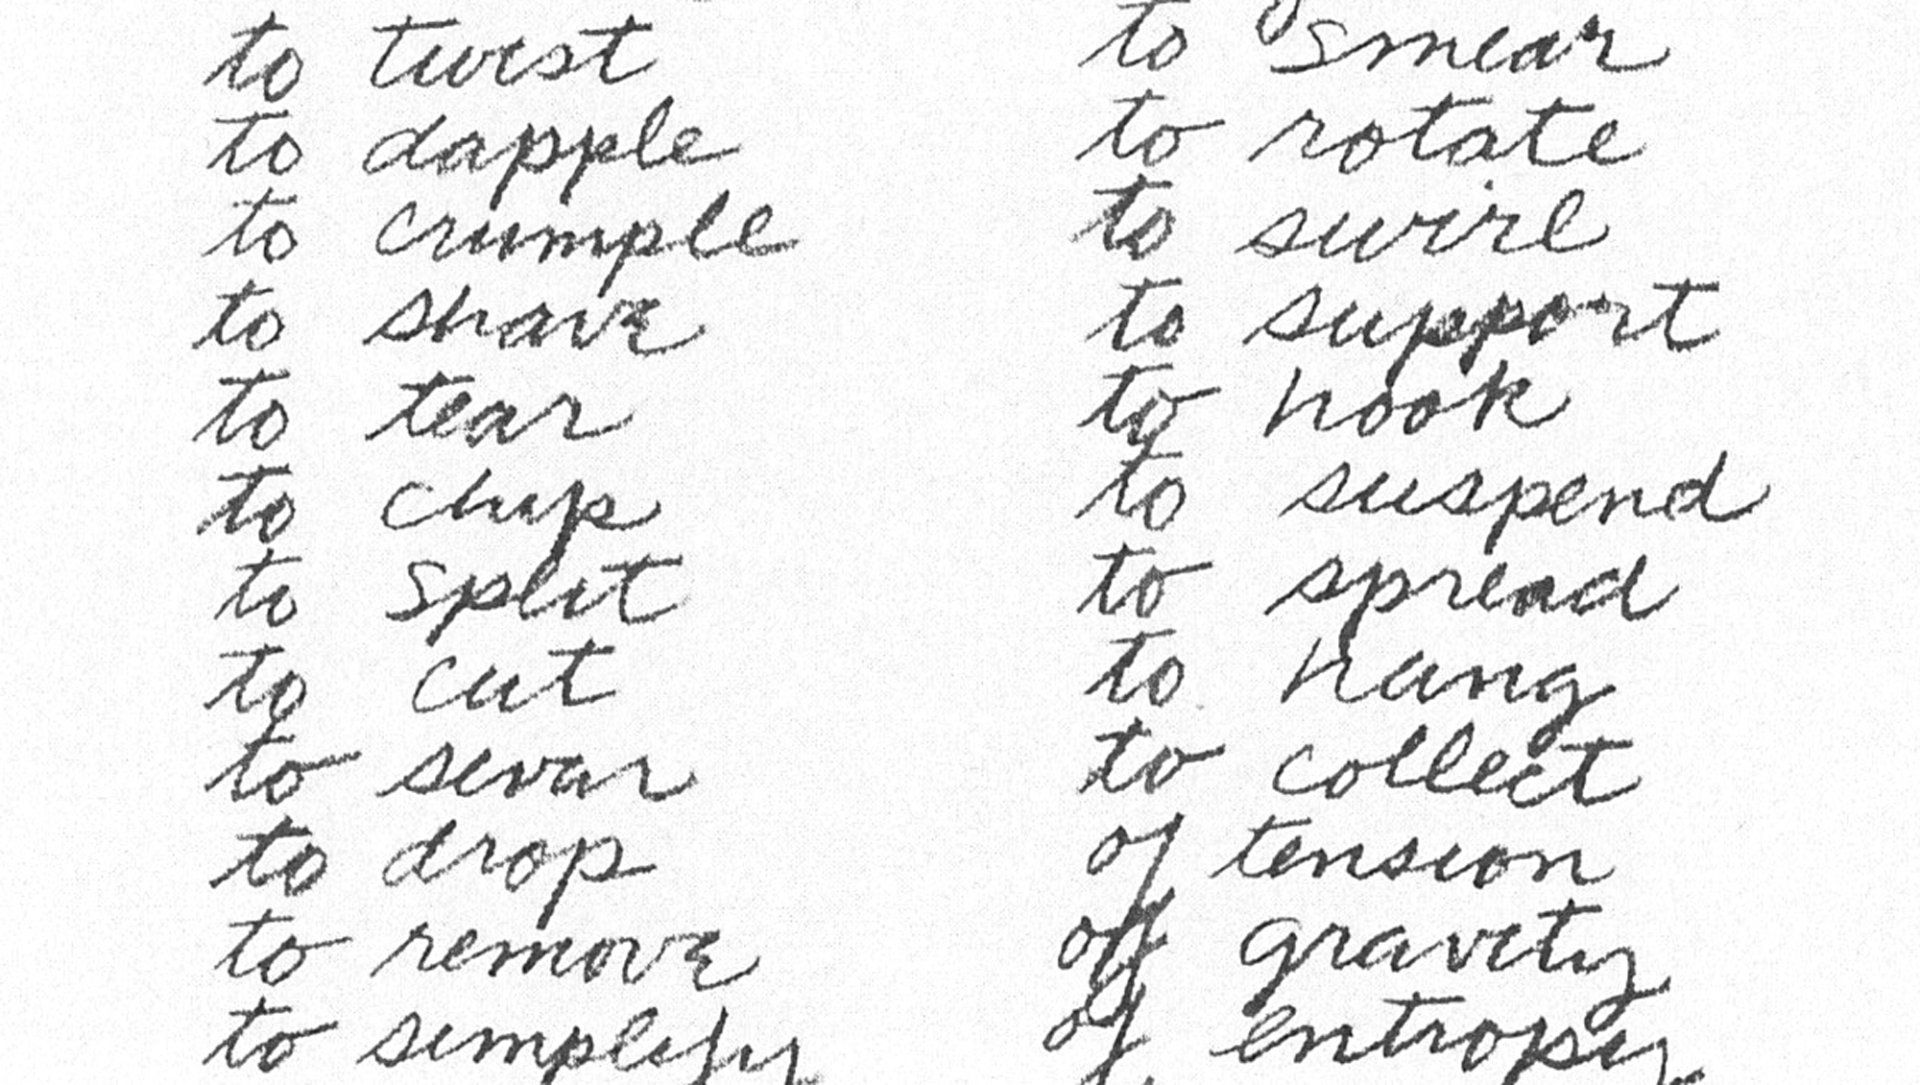 to twist
to dapple
to crumple
to shave
to tear
to chip
to split
to cut
to sevar
to drop
to remove
to simplify
to smear
to rotate
to swirl
to support
to hook
to suspend
to spread
to hang
to collect
of tension
of gravity
of entropy